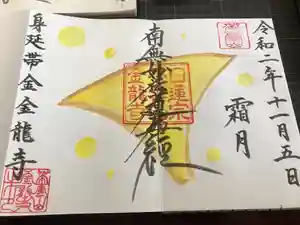 令和二年十一月五日
霜月
南無妙法蓮華経
日蓮宗
金龍寺
身延帯金金龍寺